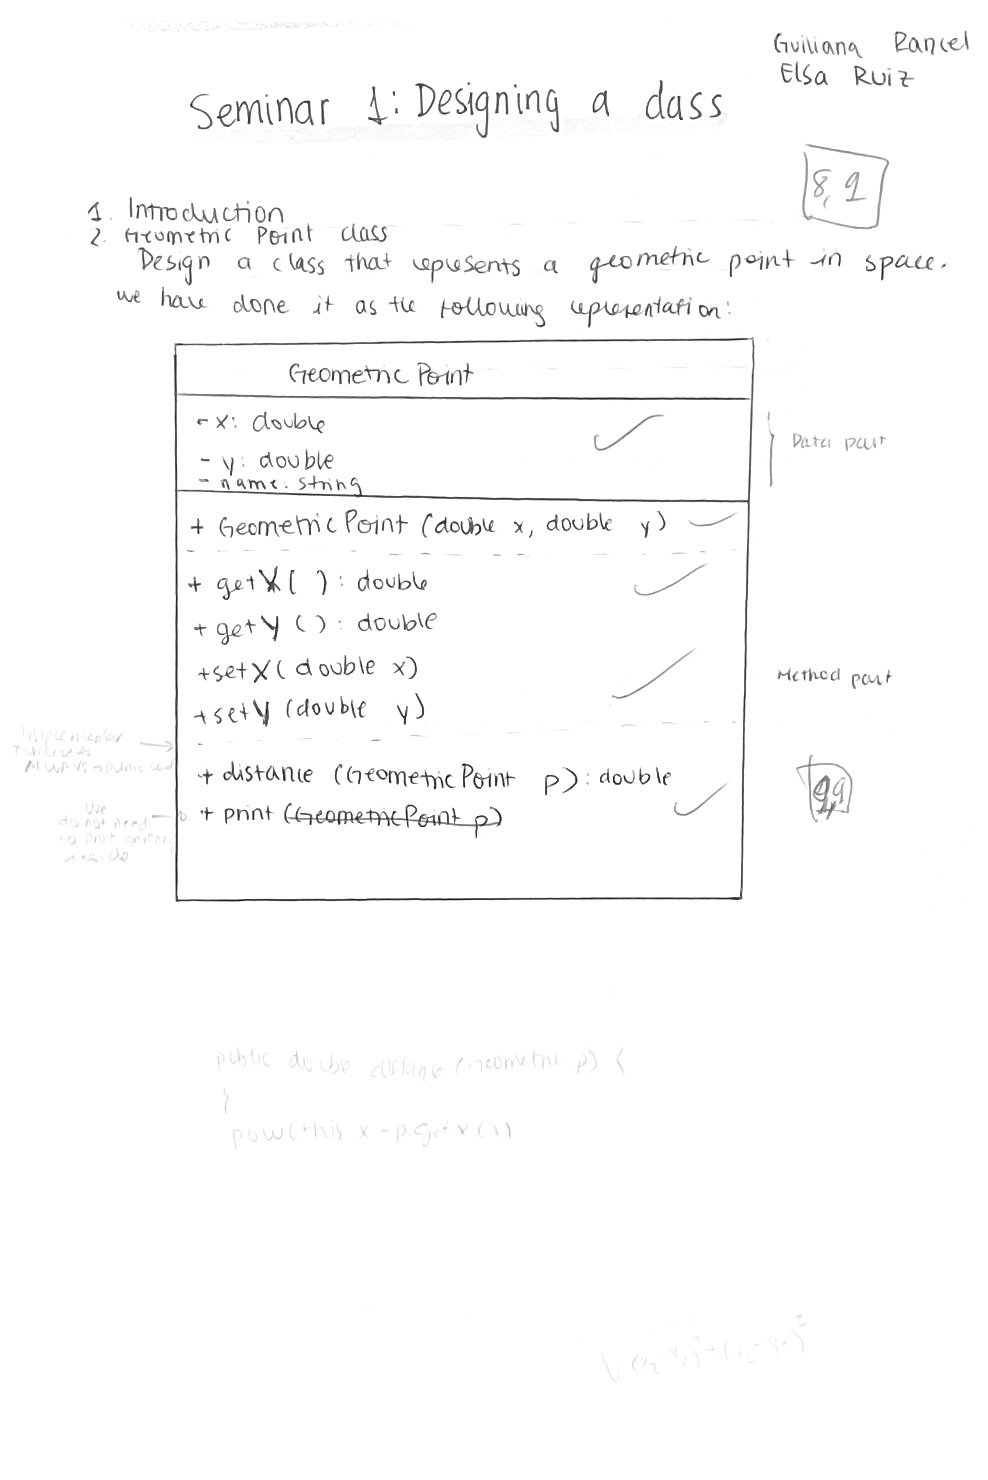 Guiliana Rancel
Elsa Ruiz
Seminar 1: Designing a class
8,1
1. Introduction
2. Geometric Point class
Design a class that represents a geometric point in space.
we have done it as the following representation:
Geometric Point
- x: double
- y: double
- name: string
Data part
+ GeometricPoint (double x, double y)
+ getX( ): double
+ getY ( ): double
+setX( double x)
+setY (double y)
Method part
+ distance (GeometricPoint p): double
+ print (GeometricPoint p)
9,9
We
do not need
to print
public double distance (Geometric p) {
}
pow(this x - p.getx()